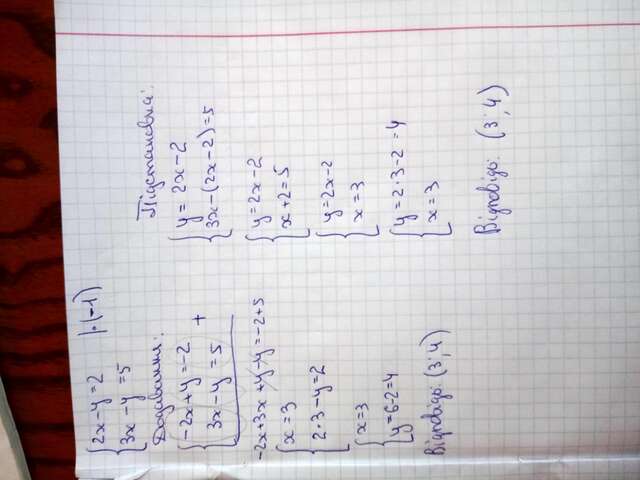 2x-y=2 |·(-1)
3x-y=5
Додавання:
-2x+y=-2
3x-y=5 +
-2x+3x+y-y=-2+5
x=3
2·3-y=2
x=3
y=6-2=4
Відповідь: (3;4)
Підстановка:
y=2x-2
3x-(2x-2)=5
y=2x-2
x+2=5
y=2x-2
x=3
y=2·3-2=4
x=3
Відповідь: (3;4)